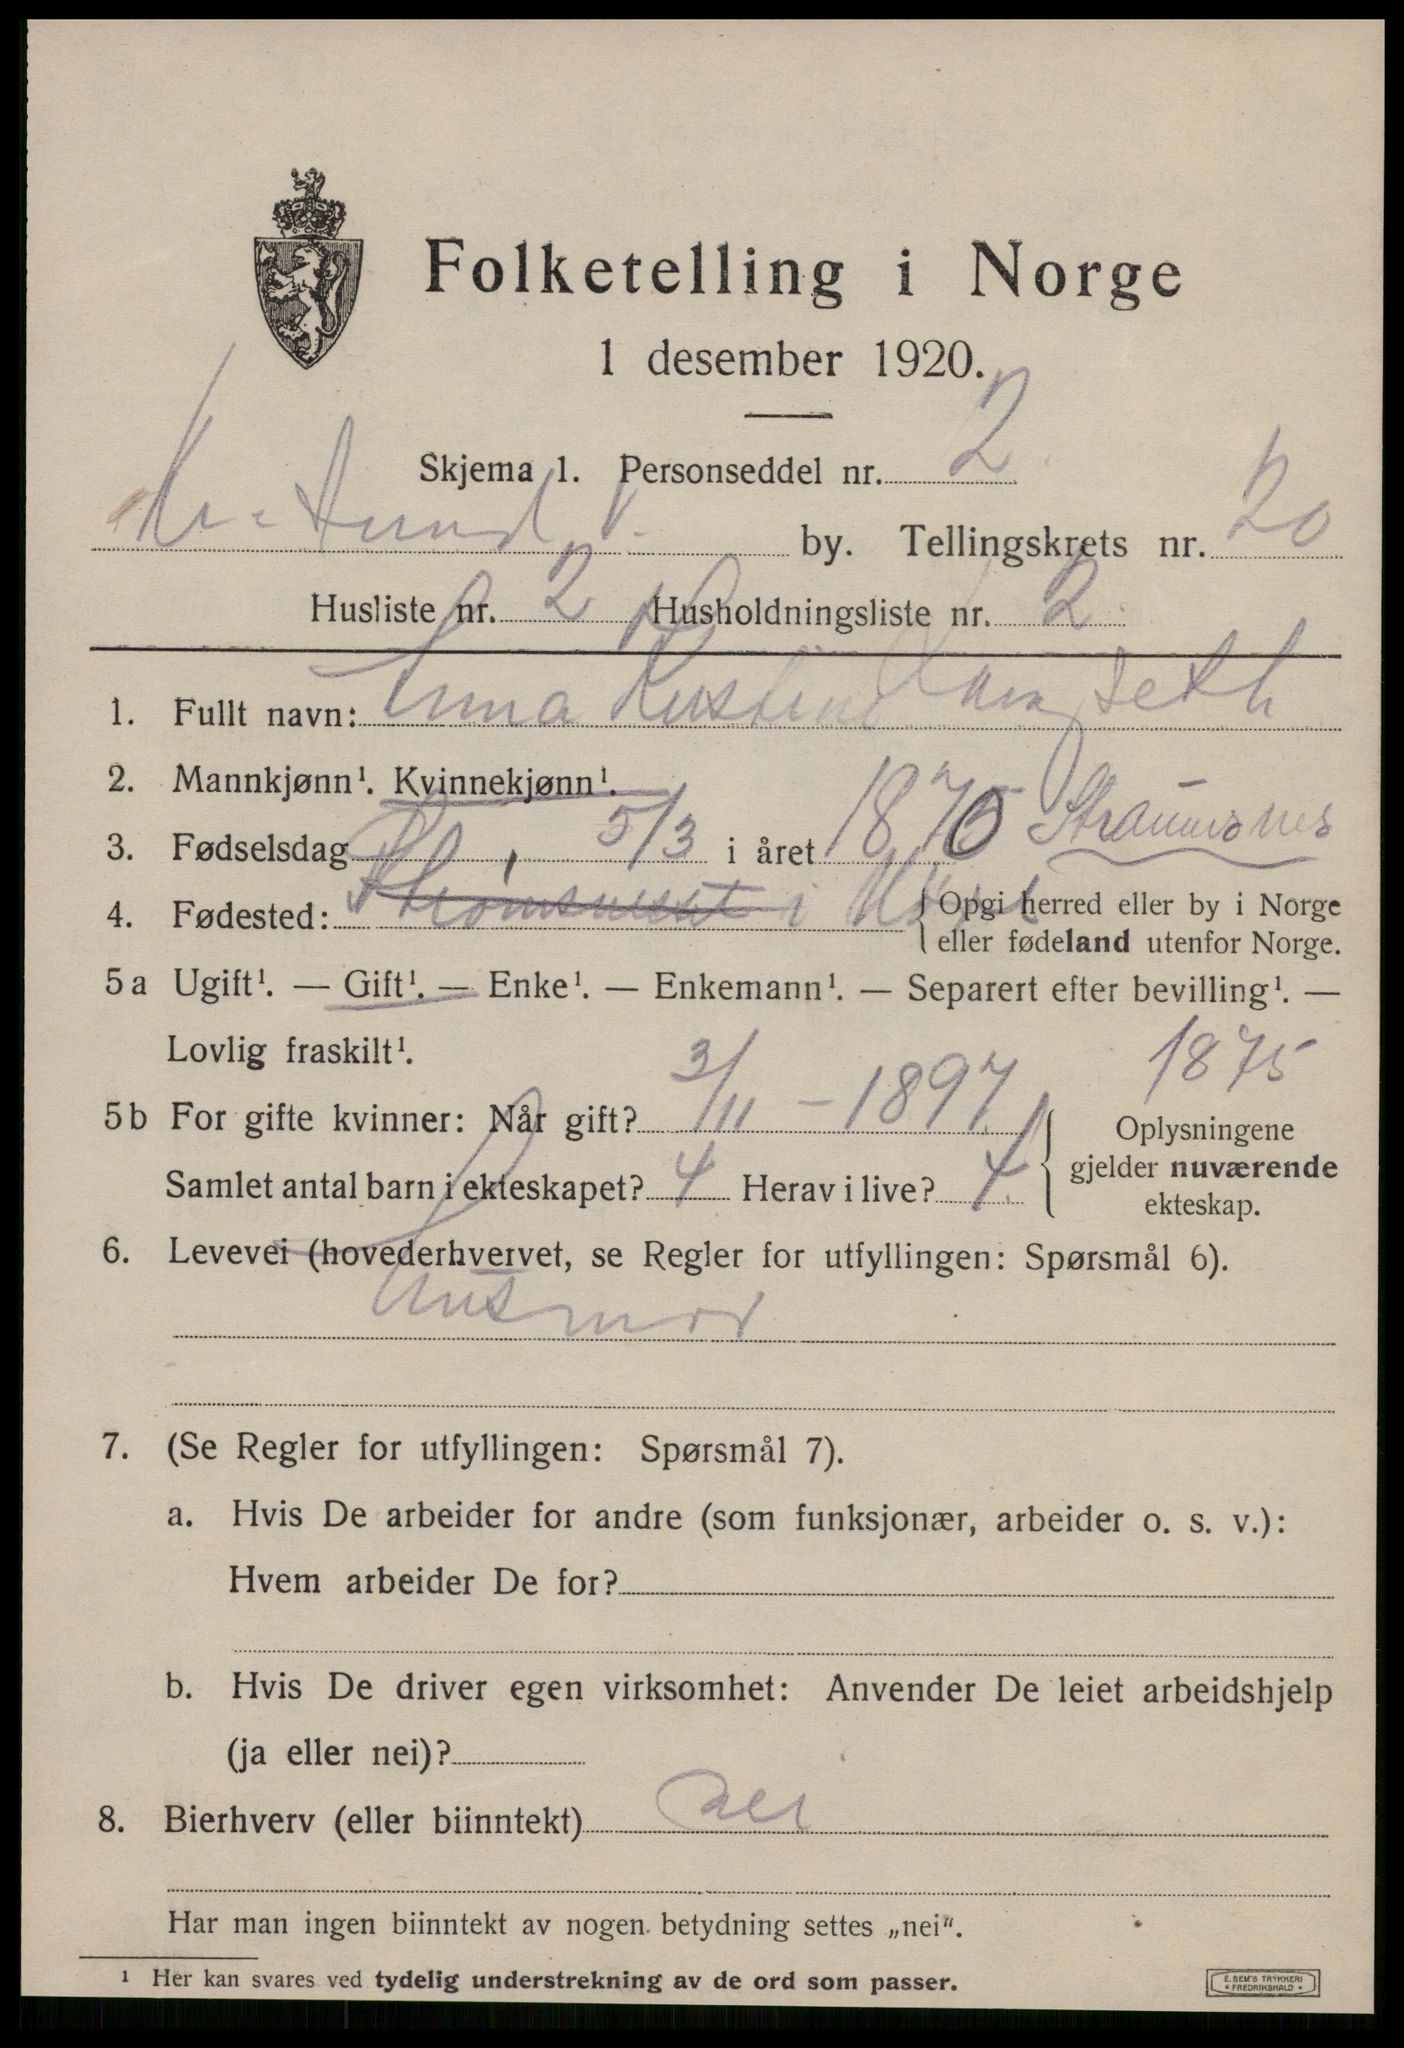 Folketelling i Norge
1 desember 1920.
Skjema 1. Personseddel nr. 2
Kr.sund N. by. Tellingskrets nr. 20
Husliste nr. 2 Husholdningsliste nr. 2.
1. Fullt navn: Anna Kristine
2. Mannkjønn¹. Kvinnekjønn¹.
3. Fødselsdag 5/3 i året 1875 Straumsnes
4. Fødested: i { Opgi herred eller by i Norge
eller fødeland utenfor Norge.
5a Ugift¹. — Gift¹. — Enke¹. — Enkemann¹. — Separert efter bevilling¹. —
Lovlig fraskilt¹.
1875
5b For gifte kvinner: Når gift? 3/11 – 1897
Samlet antal barn i ekteskapet? 4 Herav i live? 4.
Oplysningene
gjelder nuværende
ekteskap.
6. Levevei (hovederhvervet, se Regler for utfyllingen: Spørsmål 6).
Husmor
7. (Se Regler for utfyllingen: Spørsmål 7).
a. Hvis De arbeider for andre (som funksjonær, arbeider o. s. v.):
Hvem arbeider De for?
b. Hvis De driver egen virksomhet: Anvender De leiet arbeidshjelp
(ja eller nei)?
8. Bierhverv (eller biinntekt) nei
Har man ingen biinntekt av nogen betydning settes „nei".
¹ Her kan svares ved tydelig understrekning av de ord som passer.
E. SEM'S TRYKKERI
* FREDRIKSHALD *